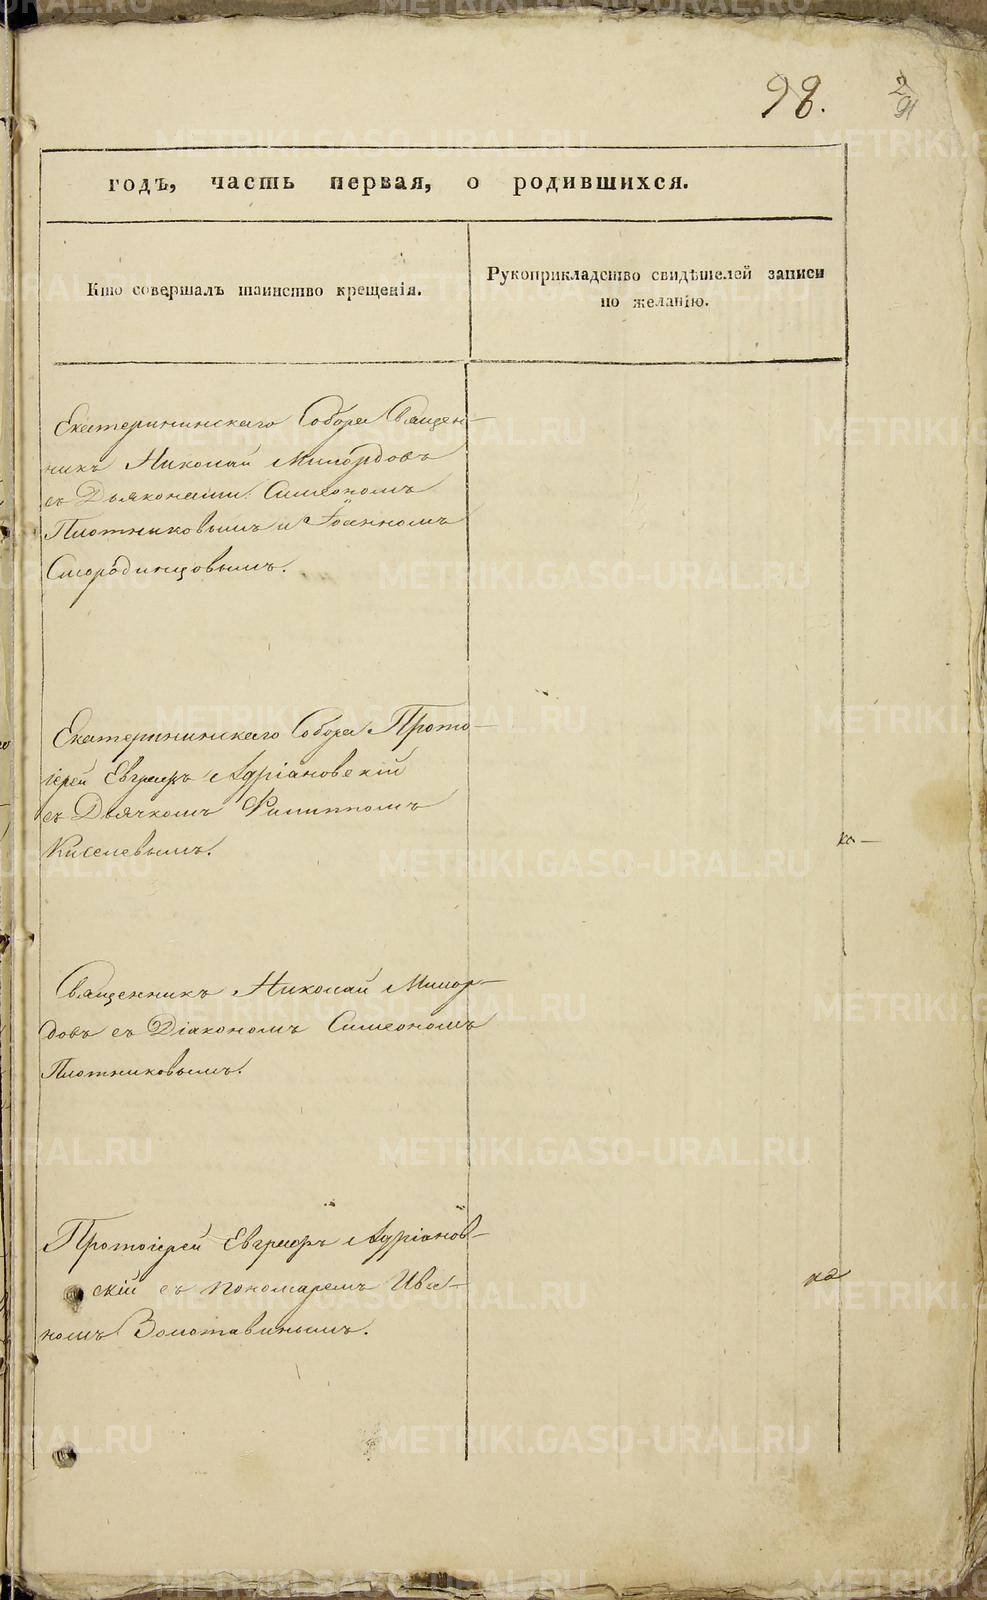 98.
2
91
годъ, часть первая, о родившихся.
Кто совершалъ таинство крещенія.
Рукоприкладство свидѣтелей записи
по желанію.
Екатерининскаго Собора Священ-
никъ Николай Милордовъ
съ Дьяконами: Симеономъ
Плотниковымъ и Іоанномъ
Смородинцовымъ.
Екатерининскаго Собора Прото-
іерей Евграфъ Адріановскій
съ Дьячкомъ Филиппомъ
Киселевымъ.
Священникъ Николай Милор-
довъ съ Діакономъ Симеономъ
Плотниковымъ.
Протоіерей Евграфъ Адріанов-
скій съ пономаремъ Ива-
номъ Золотавинымъ.
METRIKI.GASO-URAL.RU